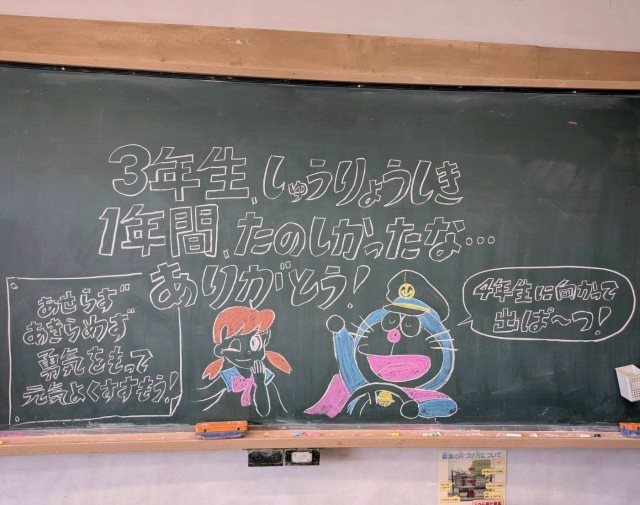 3年生、しゅうりょうしき
1年間、たのしかったな…
ありがとう!
あせらず
あきらめず
勇気をもって
元気よくすすもう!
4年生に向かって
出ぱ〜つ!